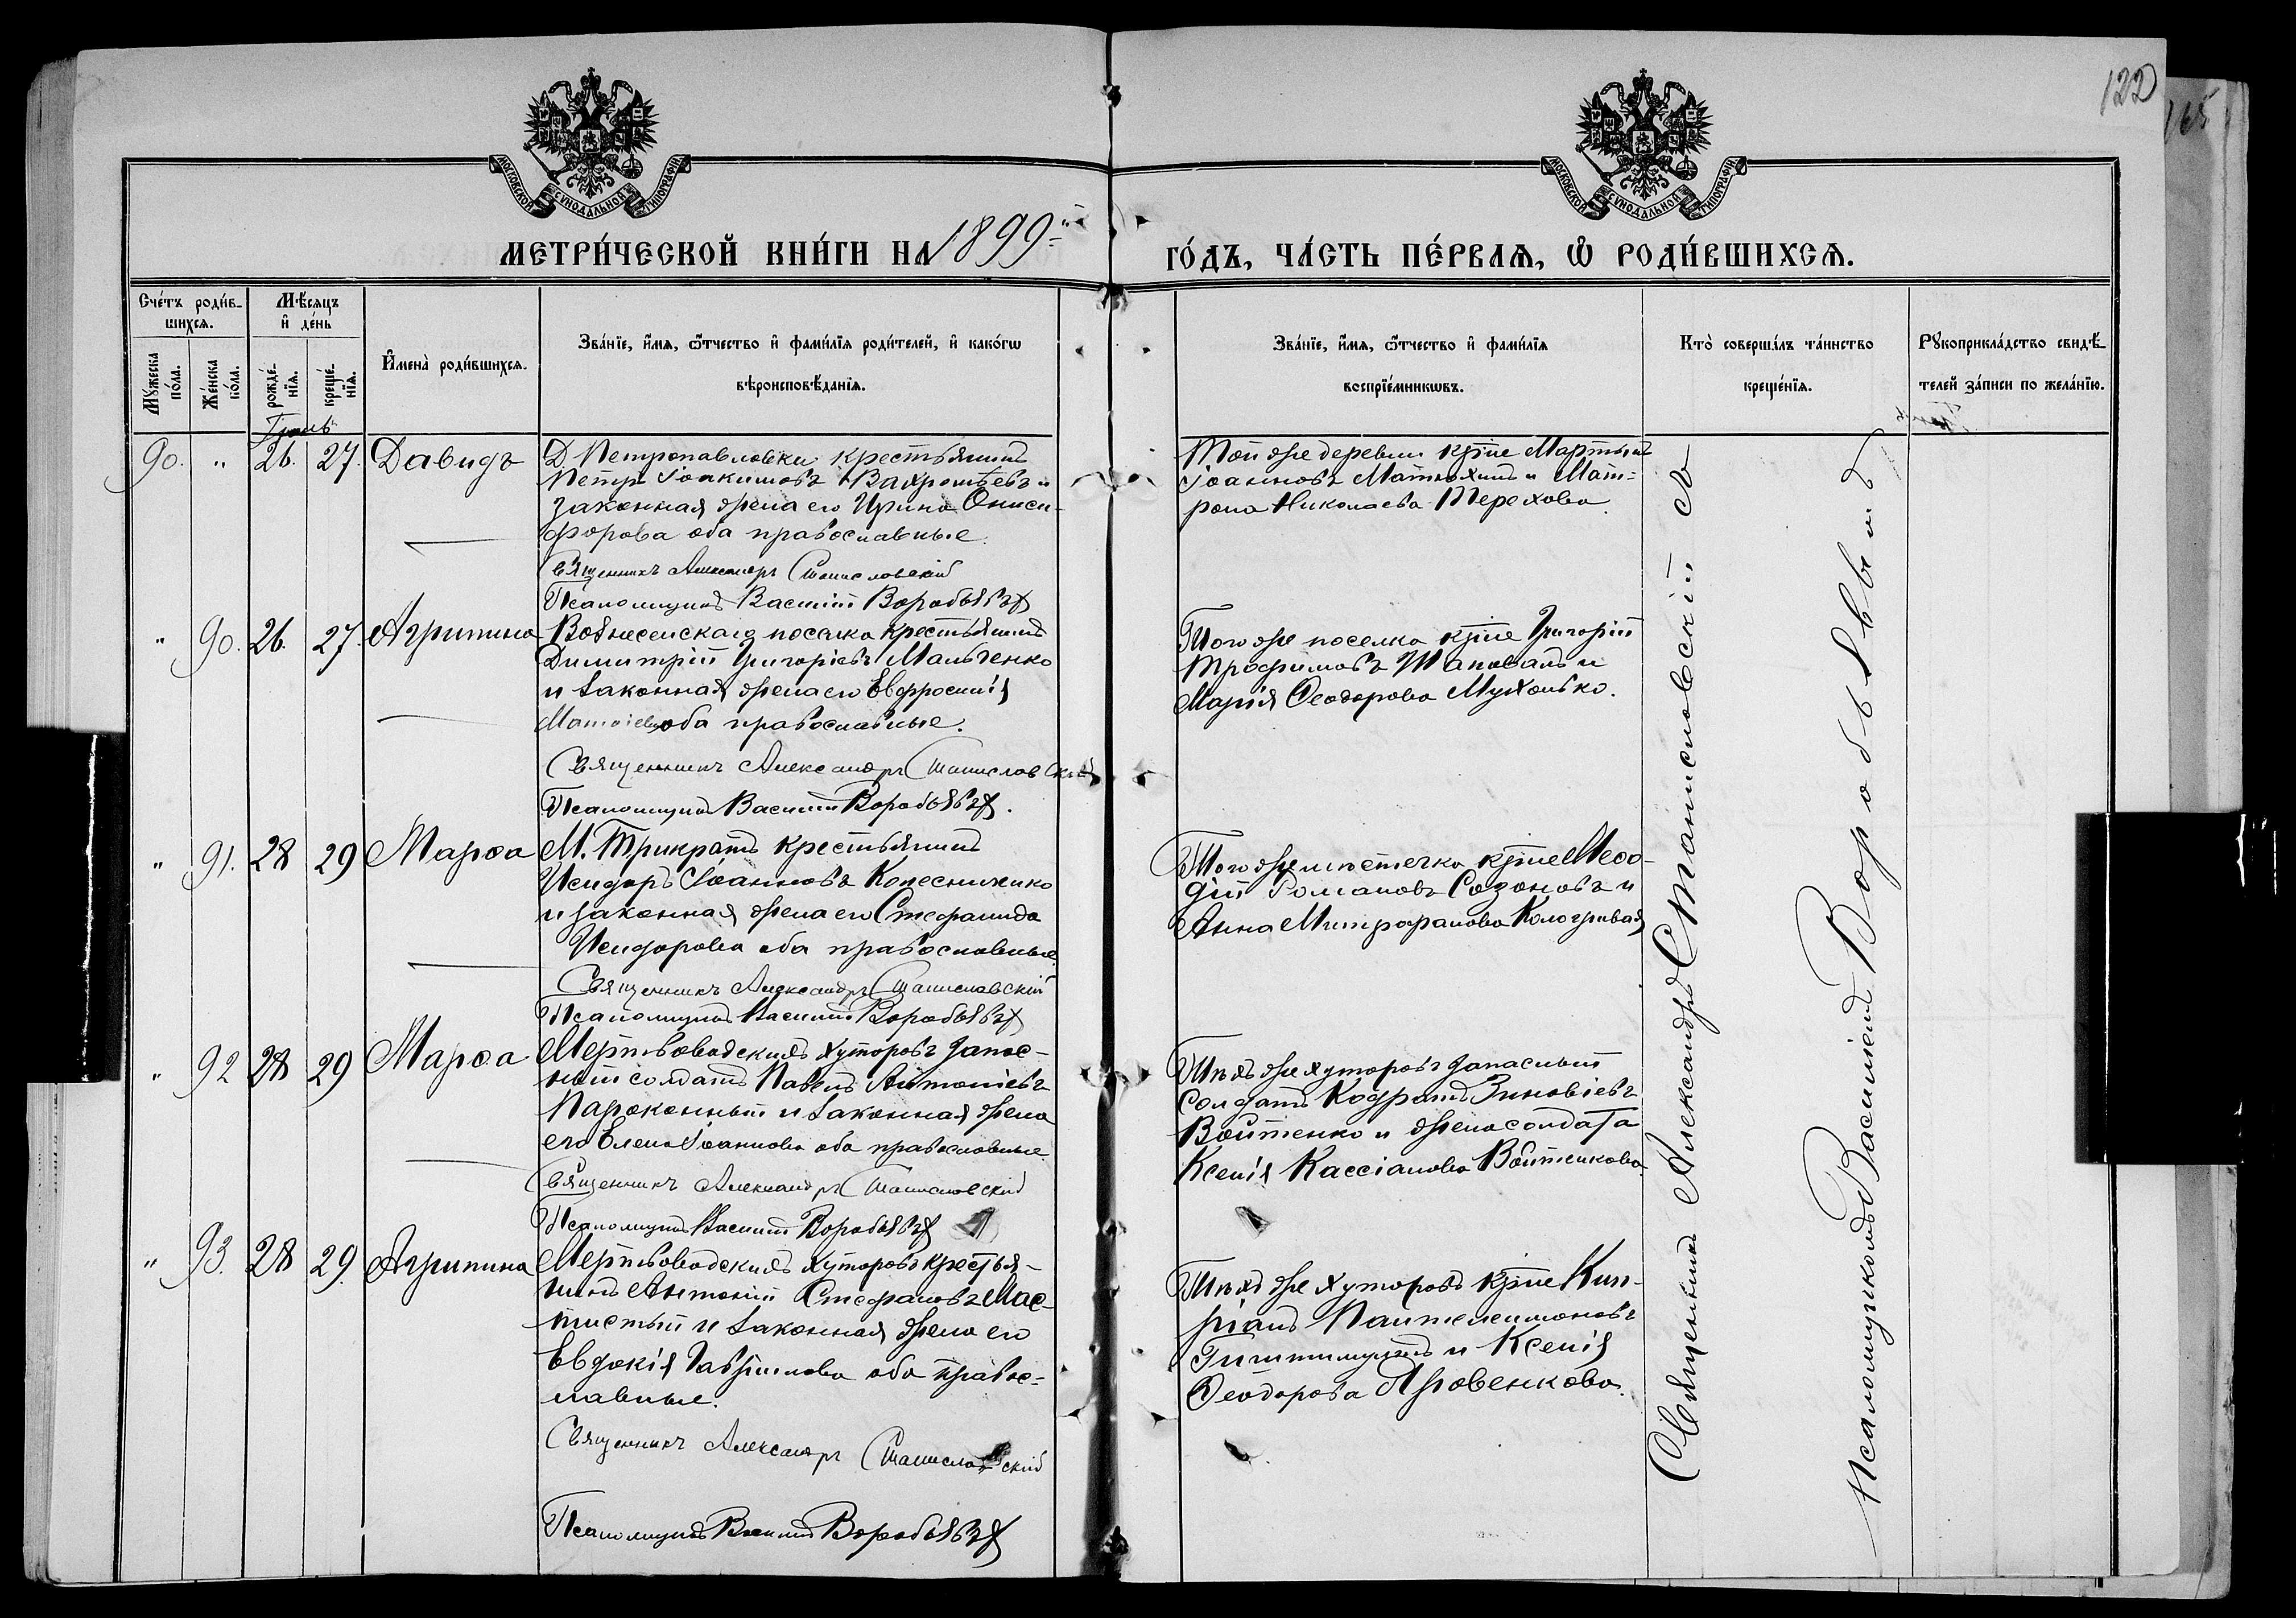 122
165
МОСКОВСКОЙ СѴНОДАЛЬНОЙ ТИПОГРАФІИ
МОСКОВСКОЙ СѴНОДАЛЬНОЙ ТИПОГРАФІИ
МЕТРИ́ЧЕСКОЙ КНИ́ГИ НА 1899й
ГО́ДЪ, ЧА́СТЬ ПЕ́РВАѦ, Ѡ РОДИ́ВШИХСѦ.
Сче́тъ роди́в-
шихсѧ.
Мѣ́сѧцъ
и҆ де́нь
Мꙋжеска по́ла.
Же́нска по́ла.
рожде́нїѧ.
креще́нїѧ.
И҆мена̀ роди́вшихсѧ.
Зва́нїе, и҆́мѧ, ѻ҆́тчество и҆ фами́лїѧ роди́телей, и҆ како́гѡ
вѣроисповѣ́данїѧ.
Зва́нїе, и҆́мѧ, ѻ҆́тчество и҆ фами́лїѧ
воспрїе́мникѡвъ.
Кто̀ соверша́лъ та́инство
креще́нїѧ.
Рꙋкоприкла́дство свидѣ́-
телей за́писи по жела́нїю.
Іюль
90. " 26. 27. Давидъ
Д. Петропавловки крестьянинъ
Петръ Іоакимовъ Вахромѣевъ и
законная жена его Ирина Ониси-
форова оба православные.
Священникъ Александръ Станиславскій
Псаломщикъ Василій Воробьевъ
Той же деревни кр-не Мартынъ
Іоанновъ Матюхинъ и Мат-
рона Николаева Терехова.
" 90. 26. 27. Агрипина
Вознесенскаго поселка крестьянинъ
Димитрій Григоріевъ Мальченко
и законная жена его Евфросинія
оба православные.
Священникъ Александръ Станиславскій
Псаломщикъ Василій Воробьевъ.
Того же поселка кр-не Григорій
Трофимовъ Шаповалъ и
Марія Ѳеодорова
" 91. 28 29 Марѳа
М. Трикратъ крестьянинъ
Исидоръ Іоанновъ Колесниченко
и законная жена его Стефанида
Исидорова оба православные
Священникъ Александръ Станиславскій
Псаломщикъ Василій Воробьевъ
Того же мѣстечка кр-не Меѳо-
дій Романовъ Созоновъ и
Анна Митрофанова Кологривая
" 92 28 29 Марѳа
Мертвоводскихъ хуторовъ запас-
ный солдатъ Павелъ Антоніевъ
Пароконный и законная жена
его Елена Іоаннова оба православные
Священникъ Александръ Станиславскій
Псаломщикъ Василій Воробьевъ
Тѣхъ же хуторовъ запасный
солдатъ Кодратъ Зиновіевъ
Войтенко и жена солдата
Ксенія Кассіанова Войтенкова
" 93. 28 29. Агрипина
Мертвоводскихъ хуторовъ крестья-
нинъ Антоній Стефановъ Мас-
тистый и законная жена его
Евдокія Гавріилова оба правос-
лавные.
Священникъ Александръ Станиславскій
Псаломщикъ Василій Воробьевъ
Тѣхъ же хуторовъ кр-не Кип-
ріанъ Пантелеимоновъ
и Ксенія
Ѳеодорова Яровенкова.
Священникъ Александръ Станиславскій съ
Псаломщикомъ Василіемъ Воробьевымъ